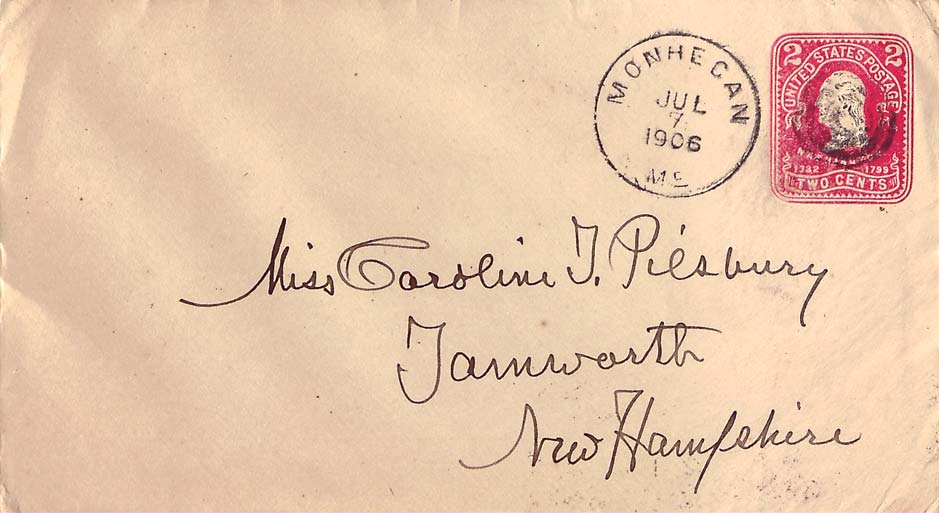 MONHEGAN
JUL
7
1906
ME
2 2
UNITED STATES POSTAGE
WASHINGTON
1732 1799
TWO CENTS
Miss Caroline T. Pilsbury
Tamworth
New Hampshire